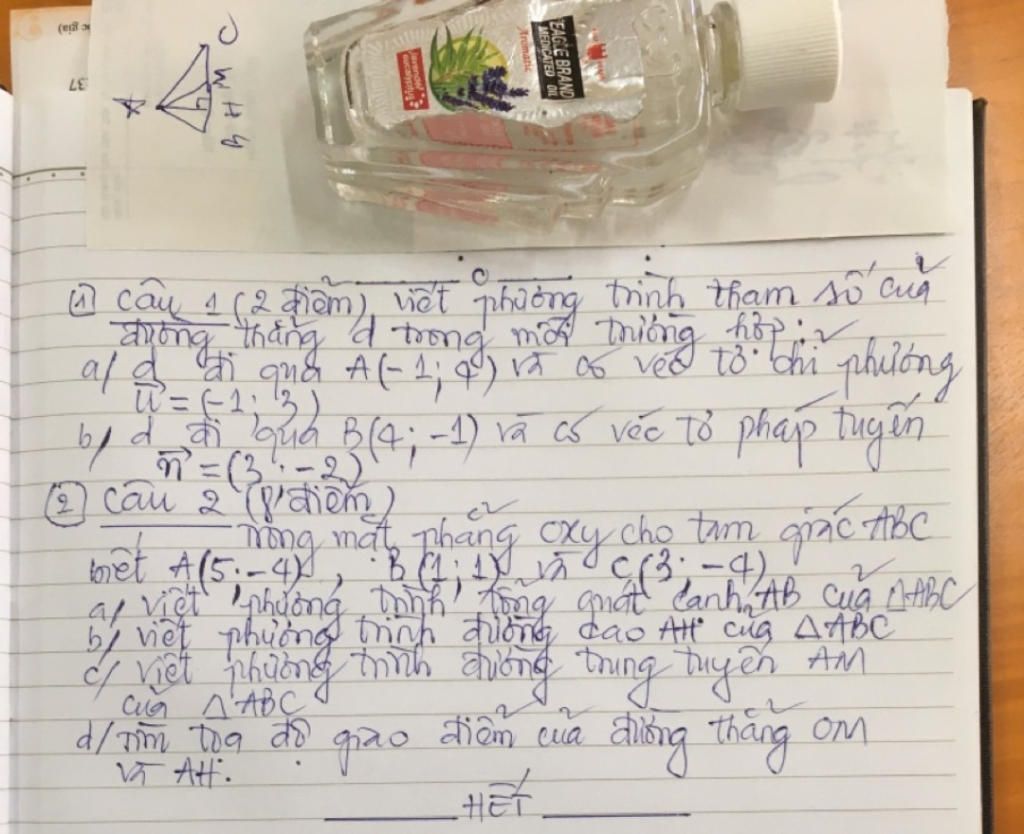 37
A
B H M C
EAGLE BRAND
MEDICATED OIL
Aromatic
lavender
eucalyptus
① Câu 1 (2 điểm) viết phương trình tham số của
đường thẳng d trong mỗi trường hợp:
a/ d đi qua A(-1; 4) và có véc tơ chỉ phương
u = (-1; 3)
b/ d đi qua B(4; -1) và có véc tơ pháp tuyến
n = (3; -2)
② Câu 2 (8 điểm)
Trong mặt phẳng oxy cho tam giác ABC
biết A(5; -4), B(1; 1) và C(3; -4)
a/ viết phương trình tổng quát cạnh AB của △ABC
b/ viết phương trình đường cao AH của △ABC
c/ viết phương trình đường trung tuyến AM
của △ABC
d/ Tìm tọa độ giao điểm của đường thẳng OM
và AH.
HẾT